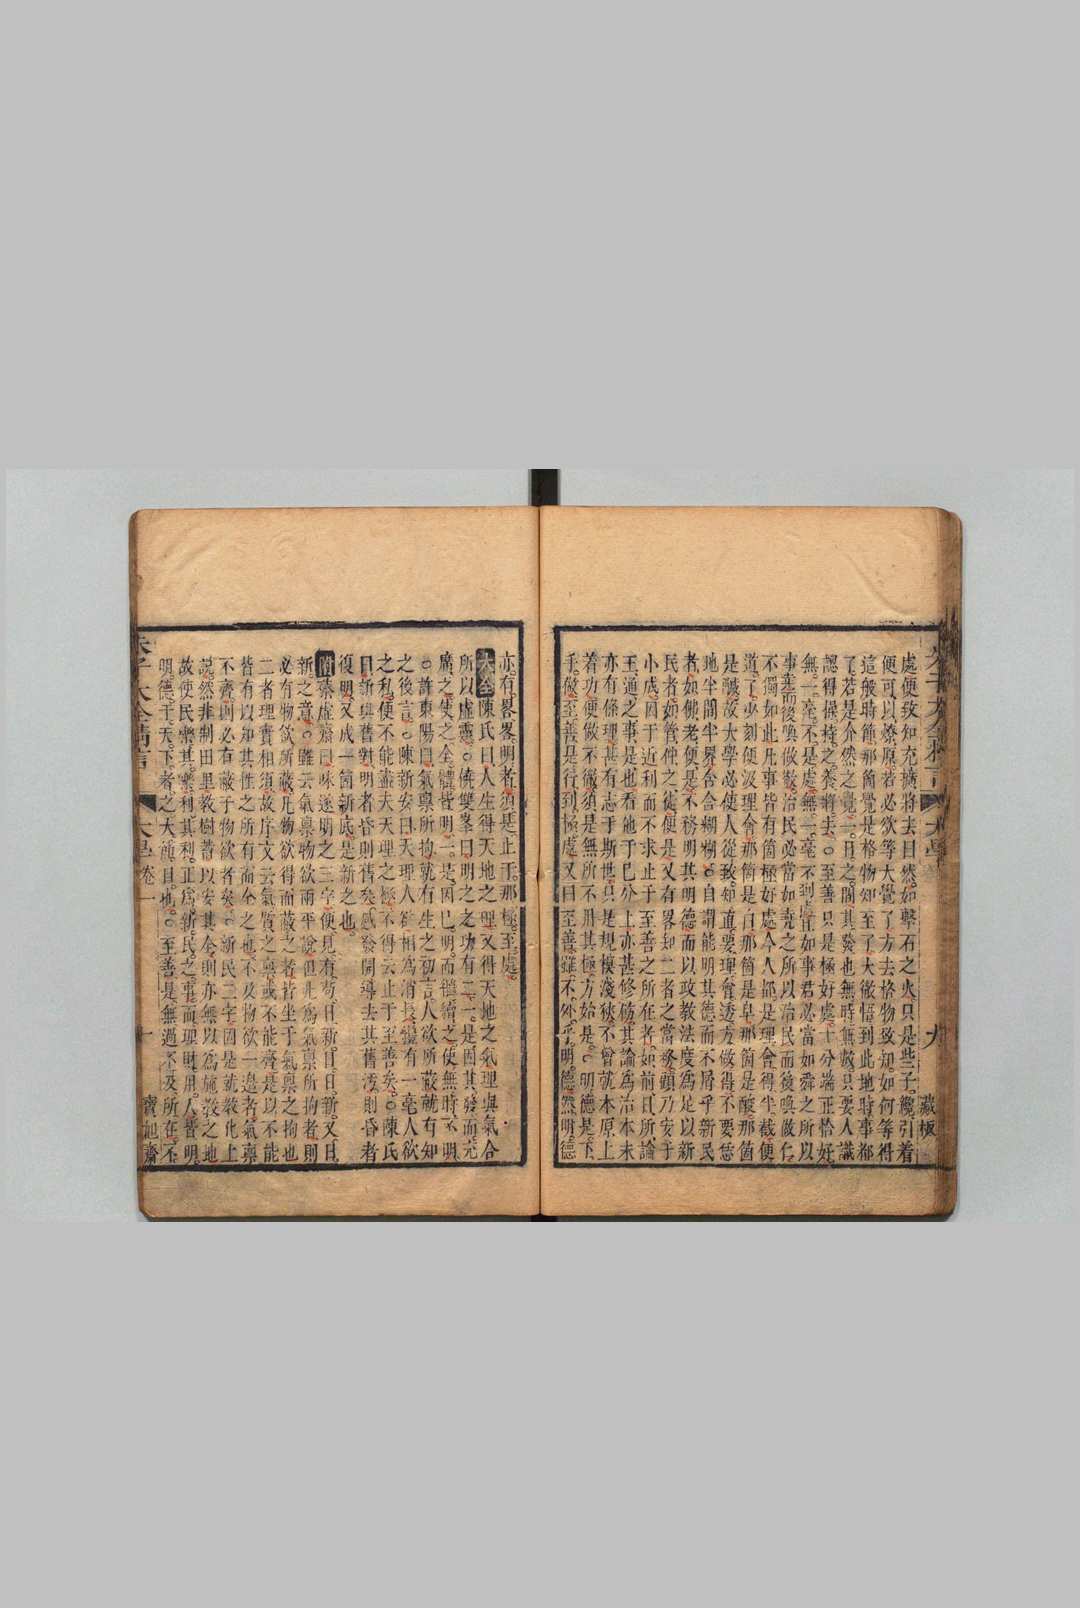 處便致知充擴將去曰然如擊石之火只是些子纔引着
便可以燎原若必欲等大覺了方去格物致知如何等得
這般時節那箇覺是格物知至了大徹悟到此地時事都
了若是介然之覺一日之間其發也無時無數只要人識
認得操持充養將去○至善只是極好處十分端正恰好
無一毫不是處無一毫不到處且如事君必當如舜之所以
事堯而後喚做敬治民必當如堯之所以治民而後喚做仁
不獨如此凡事皆有箇極好處今人都是理會得半截便
道了少刻便沒理會那箇是白那箇是皁那箇是酸那箇
是鹹故大學必使人從致知直要理會透方做得不要恁
地半間半界含含糊糊○自謂能明其德而不屑乎新民
者如佛老便是不務明其明德而以政教法度為足以新
民者如管仲之徒便是又有畧知二者之當務顧乃安於
小成因于近利而不求止于至善之所在者如前日所論
王通之事是也看他于己分上亦甚修飭其論為治本末
亦有條理甚有志于斯世只是規模淺狹不曾就本原上
着功便做不徹須是無所不用其極方始是○明德是下
手做至善是行到極處又曰至善雖不外乎明德然明德
亦有畧畧明者須是止于那極至處
大全陳氏曰人生得天地之理又得天地之氣理與氣合
所以虛靈○饒雙峯曰明之之功有二一是因其發而充
廣之使之全體皆明一是因已明而繼續之使無時不明
○許東陽曰氣稟所拘就有生之初言人欲所蔽就有知
之後言○陳新安曰天理人欲相為消長纔有一毫人欲
之私便不能盡夫天理之極不得云止于至善矣○陳氏
曰新與舊對明者昏則舊矣感發開導去其舊汚則昏者
復明又成一箇新底是新之也
附蔡虛齋曰味遂明之三字便見有苟日新日日新又日
新之意○雖云氣稟物欲兩平說但此為氣稟所拘者則
必有物欲所蔽凡物欲得而蔽之者皆坐于氣稟之拘也
二者理實相須故序文云氣質之稟或不能齊是以不能
皆有以知其性之所有而全之也不及物欲一邊者氣稟
不齊則必有蔽于物欲者矣○新民二字因是就教化上
說然非制田里教樹蓄以安其全則亦無以為施教之地
故使民樂其樂利其利正為新民之事而理財用人皆明
明德于天下者之大節目也○至善是無過不及所在不
朱子大全精言 大學卷一 十 寶旭齋
九 藏板